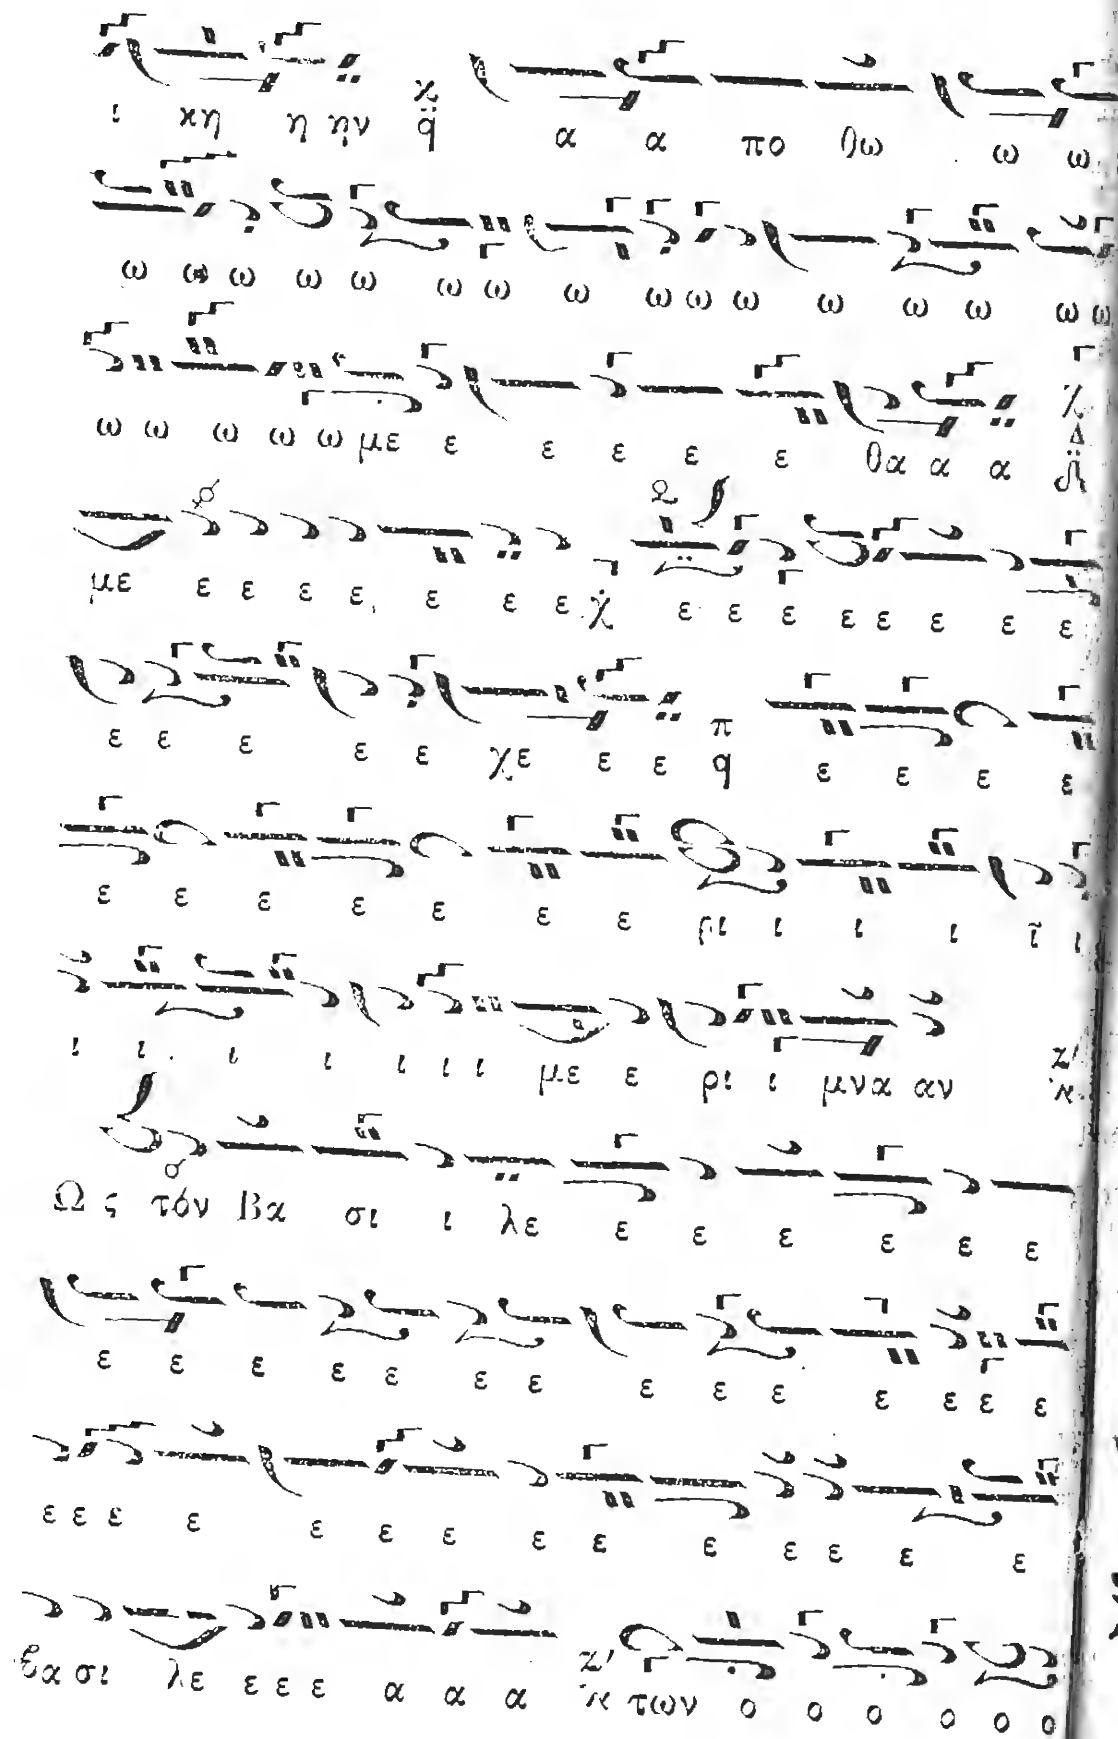 ι κη η ην χ̈ q α α πο θω ω ω
ω ω ω ω ω ω ω ω ω ω ω ω ω ω ω ω
ω ω ω ω ω με ε ε ε ε ε θα α α Δ
με ε ε ε ε ε ε ε χ ε ε ε ε ε ε ε ε
ε ε ε ε ε χε ε ε π q ε ε ε ε
ε ε ε ε ε ε ε ρι ι ι ι ι ι
ι ι ι ι ι ι ι με ε ρι ι μνα αν Ζ΄
Ως τόν Βα σι ι λε ε ε ε ε ε ε
ε ε ε ε ε ε ε ε ε ε ε ε ε ε
ε ε ε ε ε ε ε ε ε ε ε ε ε ε
βα σι λε ε ε ε α α α Ζ΄ των ο ο ο ο ο ο